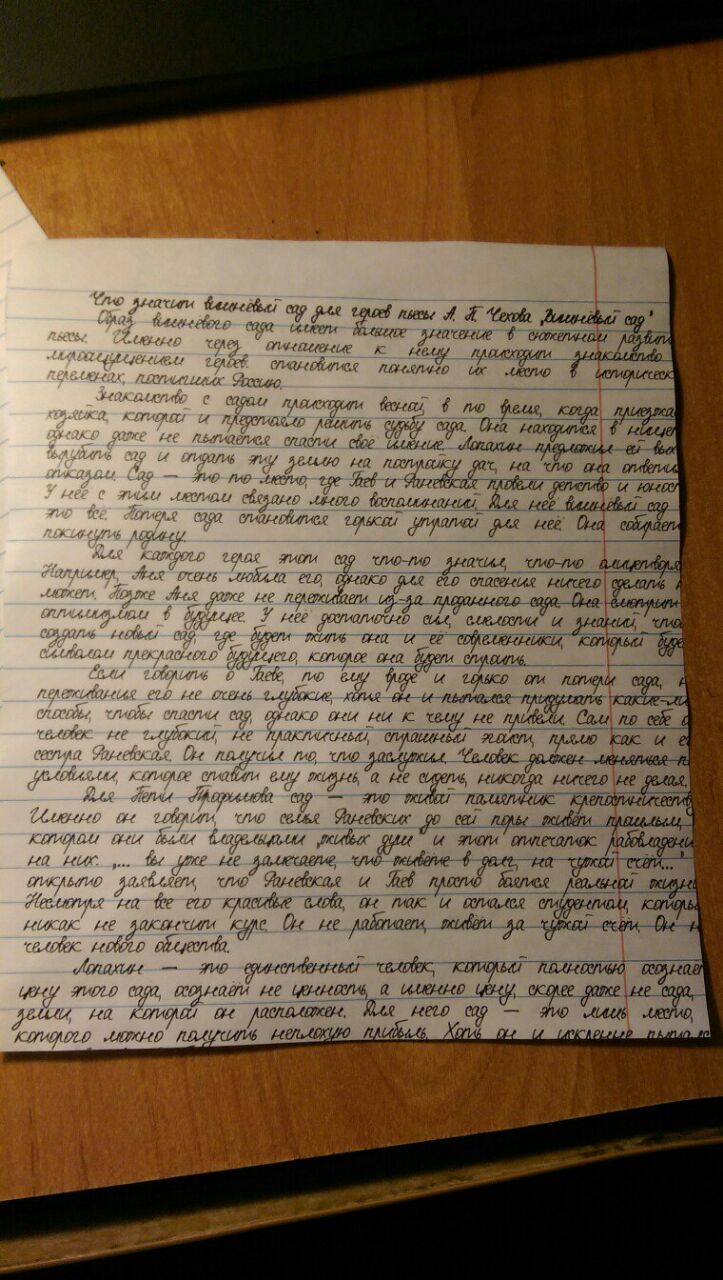 Что значит вишнёвый сад для героев пьесы А. П. Чехова „Вишнёвый сад"
Образ вишнёвого сада имеет большое значение в сюжетном развити
пьесы. Именно через отношение к нему происходит знакомство
мироощущением героев. становится понятно их место в историческ
переменах, постигших Россию.
Знакомство с садом происходит весной, в то время, когда приезжа
хозяйка, которой и предстояло решить судьбу сада. Она находится в нищет
однако даже не пытается спасти своё имение. Лопахин предложил ей
вырубить сад и отдать эту землю на постройку дач, на что она ответи
отказом. Сад — это то место, где Гаев и Раневская провели детство и юност
У неё с этим местом связано много воспоминаний. Для неё вишнёвый сад
это всё. Потеря сада становится горькой утратой для неё. Она собирает
покинуть родину.
Для каждого героя этот сад что-то значил, что-то олицетворя
Например, Аня очень любила его, однако для его спасения ничего сделать н
может. Позже Аня даже не переживает из-за проданного сада. Она смотрит
оптимизмом в будущее. У неё достаточно сил, смелости и знаний, что
создать новый сад, где будет жить она и её современники, который буде
символом прекрасного будущего, которое она будет строить.
Если говорить о Гаеве, то ему вроде и горько от потери сада, н
переживания его не очень глубокие, хотя он и пытался придумать какие-ли
способы, чтобы спасти сад, однако они ни к чему не привели. Сам по себе о
человек не глубокий, не практичный, страшный эгоист, прямо как и е
сестра Раневская. Он получил то, что заслужил. Человек должен меняться п
условиями, которое ставит ему жизнь, а не сидеть, никогда ничего не делая.
Для Пети Трофимова сад — это живой памятник крепостничеств
Именно он говорит, что семья Раневских до сей поры живёт прошлым,
котором они были владельцами „живых душ" и этот отпечаток рабовладени
на них. „... вы уже не замечаете, что живёте в долг, на чужой счёт..."
открыто заявляет, что Раневская и Гаев просто боятся реальной жизн
Несмотря на все его красивые слова, он так и остался студентом, которы
никак не закончит курс. Он не работает, живёт за чужой счёт. Он н
человек нового общества.
Лопахин — это единственный человек, который полностью осознаёт
цену этого сада, осознаёт не ценность, а именно цену, скорее даже не сада,
земли, на которой он расположен. Для него сад — это лишь место,
которого можно получить неплохую прибыль. Хоть он и искренне пытал